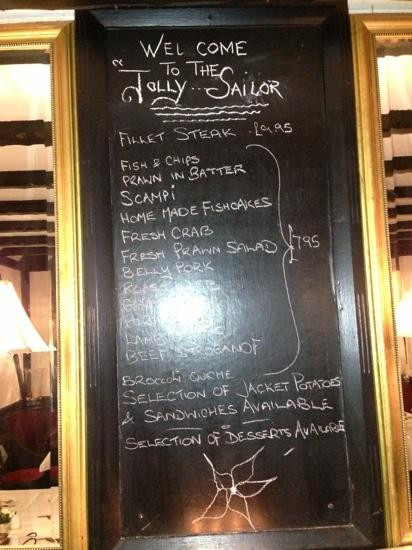 WELCOME
TO THE
"JOLLY SAILOR
FILLET STEAK £9.95
FISH & CHIPS
PRAWN IN BATTER
SCAMPI
HOME MADE FISHCAKES
FRESH CRAB
FRESH PRAWN SALAD
7.95
BELLY PORK
ROAST
LAMB
BEEF STROGANOF
BROCCOLI QUICHE
SELECTION OF JACKET POTATOES
& SANDWICHES AVAILABLE
SELECTION OF DESSERTS AVAILABLE